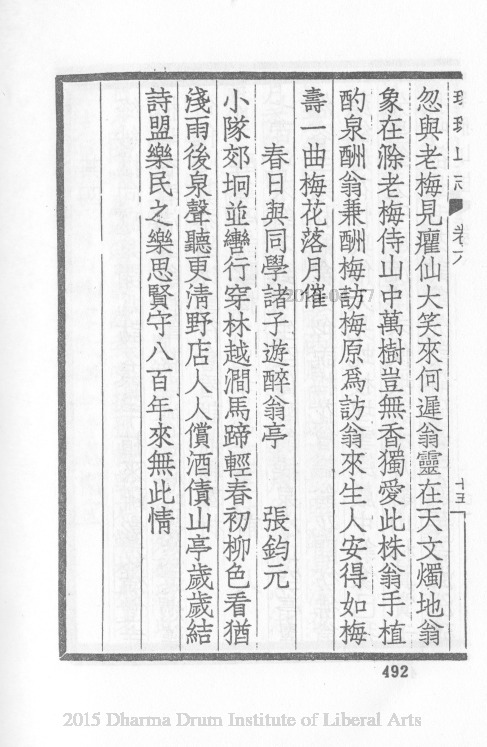 瑯琊山志 卷八 十五
忽與老梅見癯仙大笑來何遲翁靈在天文燭地翁
象在滁老梅侍山中萬樹豈無香獨愛此株翁手植
酌泉酬翁兼酬梅訪梅原爲訪翁來生人安得如梅
壽一曲梅花落月催
春日與同學諸子遊醉翁亭 張鈞元
小隊郊坰並轡行穿林越澗馬蹄輕春初柳色看猶
淺雨後泉聲聽更清野店人人償酒債山亭歲歲結
詩盟樂民之樂思賢守八百年來無此情
492
2015 Dharma Drum Institute of Liberal Arts